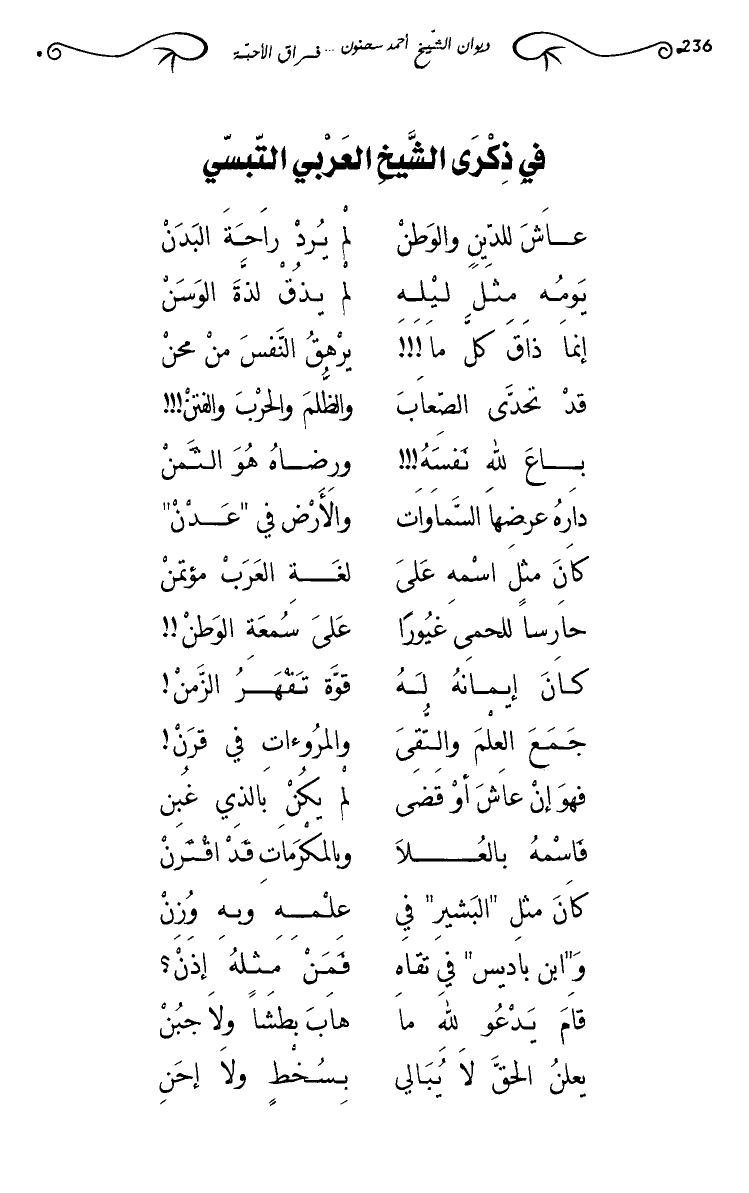 236 ديوان الشّيخ أحمد سحنون ... فراق الأحبّة
في ذِكْرَى الشَّيخِ العَرْبي التّبسّي
عاشَ للدّينِ والوَطنْ لَمْ يُرِدْ راحَةَ البَدَنْ
يَومُه مِثلُ ليْلِهِ لَمْ يذقْ لذةَ الوَسَنْ
إنما ذاقَ كلَّ ما!!! يرْهِقُ النَّفسَ مِنْ مِحَنْ
قدْ تحدَّى الصّعابَ والظّلمَ والحْربَ والفتنْ!!!
باعَ للهِ نَفسَهُ!!! ورِضاهُ هُوَ الثَّمنْ
دارهُ عرضها السَّماوات والأَرْض في "عَدْنْ"
كانَ مثل اسْمهِ عَلىَ لغَةِ العَرَبْ مؤتمنْ
حارساً للحمى غيُورًا عَلىَ سُمعَةِ الوَطنْ!!
كانَ إيمانهُ لهُ قوَّة تَقْهَرُ الزَّمنْ!
جَمَعَ العِلْمَ والتُّقىَ والمرُوءاتِ في قرَنْ!
فهوَ إنْ عاشَ أوْ قضَى لَمْ يكُنْ بالذي غُبِن
فَاسْمهُ بالعُلاَ وبالمكْرمَاتِ قدْ اقْترنْ
كانَ مثل "البَشير" في علْمِهِ وبهِ وُزِنْ
وَ"ابن باديس" في تقاهِ فَمَنْ مثلهُ إذنْ؟
قامَ يَدْعُو للهِ ما هابَ بطشاً ولاَ جبُنْ
يعلنُ الحقَّ لاَ يُبَالي بسُخْطٍ ولاَ إحَنِ